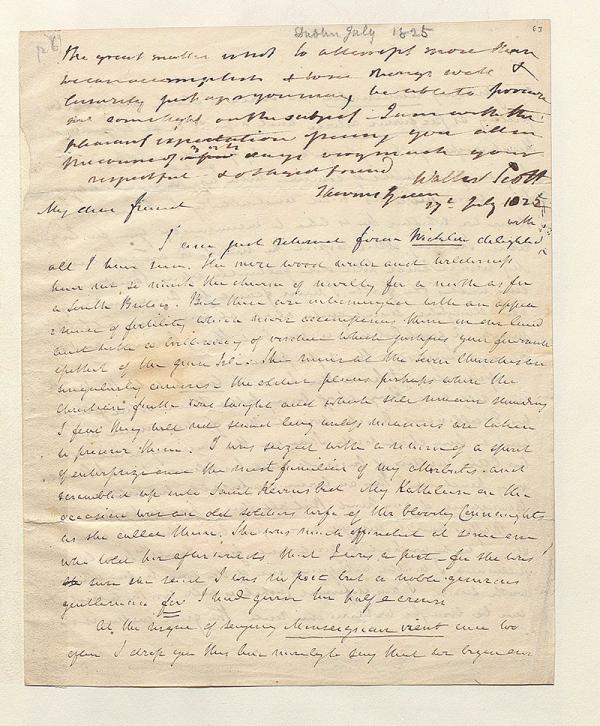 Dublin July 1825
63
The great matter is not to attempt more than
we can accomplish & some things well &
leisurely perhaps you may be able to procure
me some light on the subject. I am with the
pleasant expectation of seeing you all in
the course of 3 or 4 days very much your
respectful & obliged friend
Walter Scott
Stevens Green
27 July 1825
My dear friend
I am just returned from Wicklow delighted with
all I have seen. The mere wood water and wilderness
have not so much the charm of novelty for a north as for
a South Briton. But these are intermingled with an appea
rance of fertility which never accompanies them in our land
and with a brilliancy of verdure which justifies your favourite
epithet of the green Isle. The ruins at the Seven Churches are
singularly curious the oldest places perhaps where the
Christian faith was taught and which still remain standing
I fear they will not stand long unless measures are taken
to preserve them. I was seized with a return of a spirit
of enterprize once the most familiar of my attributes and
scrambled up into Saint Kevins bed My Kathleen on the
occasion was an old soldiers wife of the bloody Connaughts
as she called them. She was much offended at some one
who told her afterwards that I was a poet - for she was
sure she said I was no poet but a noble generous
gentleman for I had given her half a crown
At the risque of saying Monseigneur vient once too
often I drop you this line merely to say that we